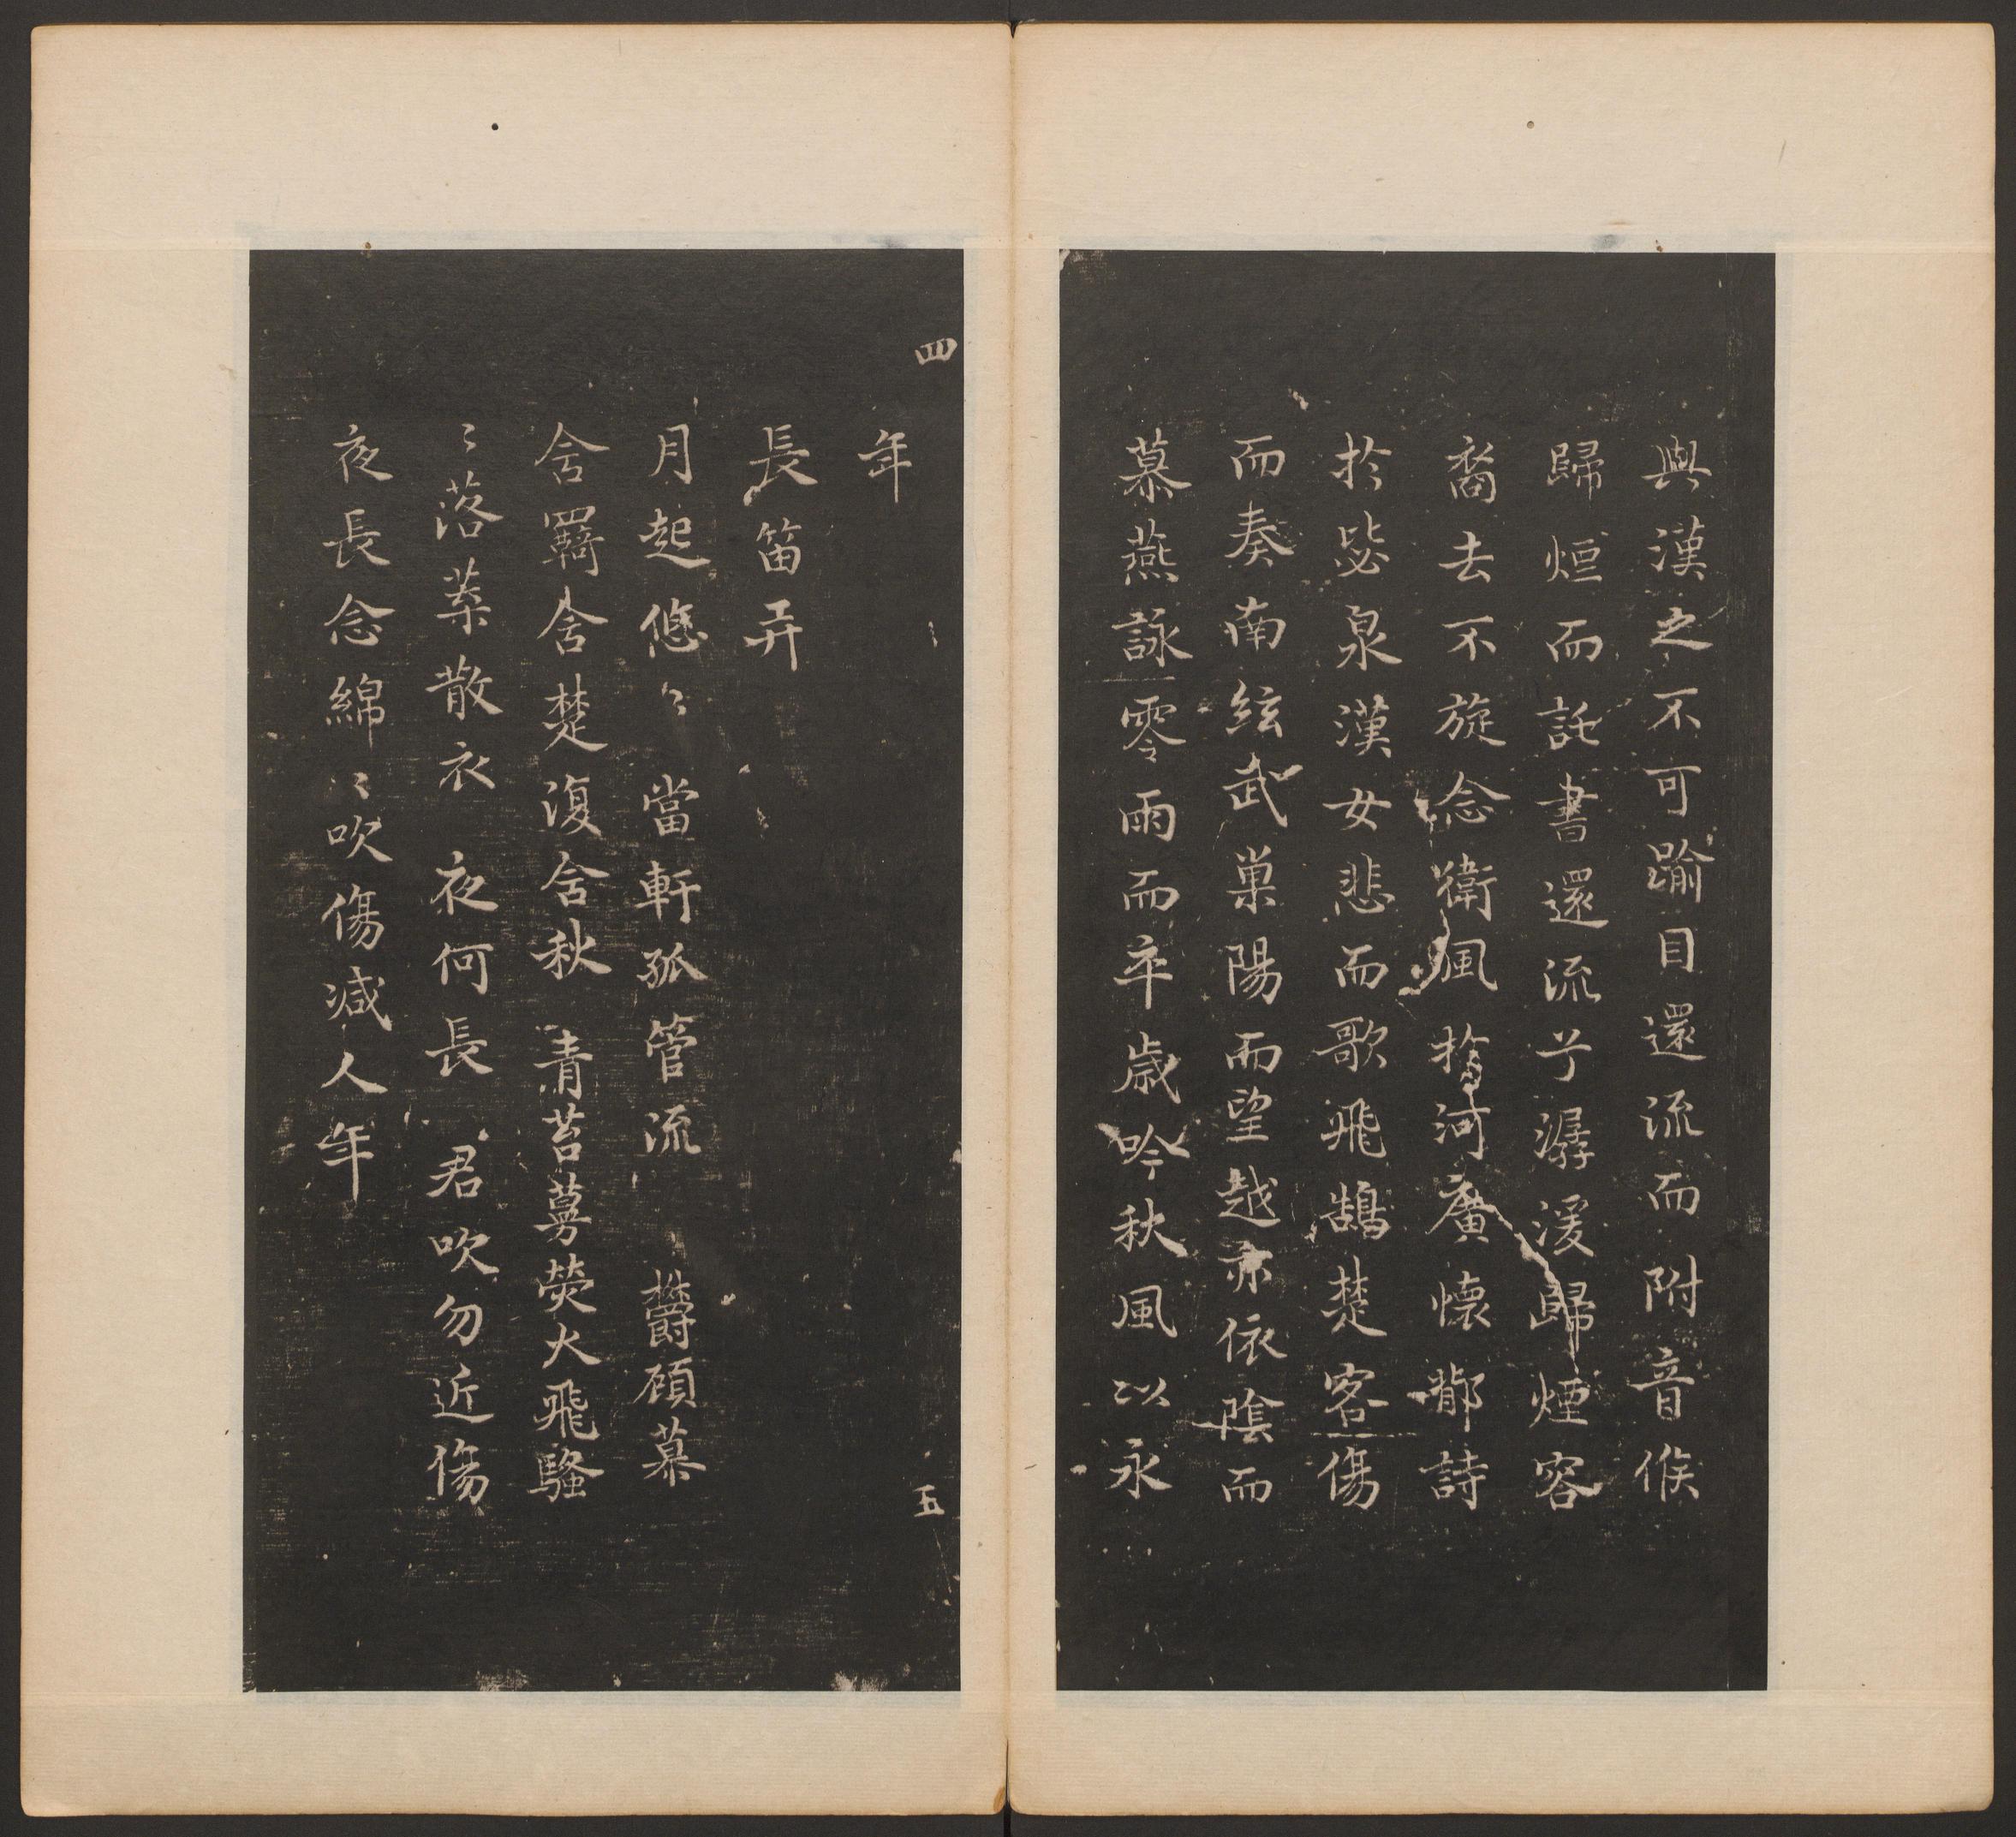 與漢之不可踰目還流而附音候
歸烜而託書還流兮潺湲歸煙容
裔去不旋念衛風於河廣懷鄁詩
於毖泉漢女悲而歌飛鵠楚客傷
而奏南絃武巢陽而望越亦依陰而
慕燕詠零雨而卒歲吟秋風以永
四
年
五
長笛弄
月起悠〻當軒孤管流 欝顧慕
含羈含楚復含秋 青苔蔓熒火飛騷
〻落葉散衣 夜何長 君吹勿近傷
夜長念綿〻吹傷減人年